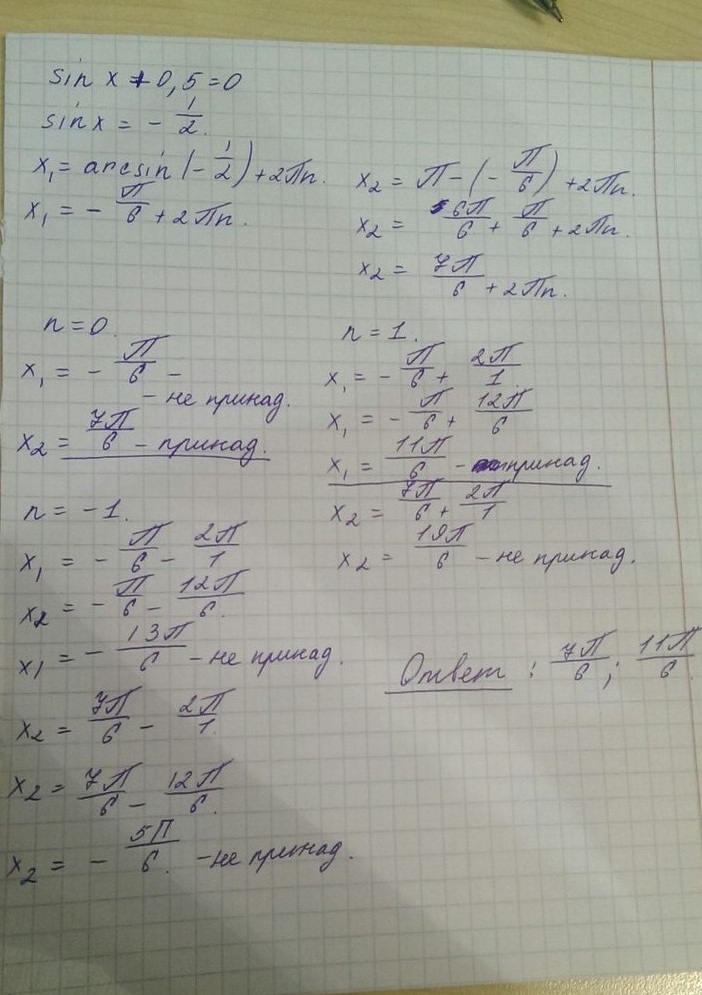 sin x + 0,5 = 0
sin x = - 1/2.
x₁ = arcsin (- 1/2) + 2Пn.
x₁ = - П/6 + 2Пn.
x₂ = П - (- П/6) + 2Пn.
x₂ = 6П/6 + П/6 + 2Пn.
x₂ = 7П/6 + 2Пn.
n = 0.
x₁ = - П/6 -
- не принад.
x₂ = 7П/6 - принад.
n = 1.
x₁ = - П/6 + 2П/1
x₁ = - П/6 + 12П/6
x₁ = 11П/6 - принад.
x₂ = 7П/6 + 2П/1
x₂ = 19П/6 - не принад.
n = -1.
x₁ = - П/6 - 2П/1
x₂ = - П/6 - 12П/6.
x₁ = - 13П/6 - не принад.
x₂ = 7П/6 - 2П/1.
x₂ = 7П/6 - 12П/6.
x₂ = - 5П/6. - не принад.
Ответ : 7П/6; 11П/6.